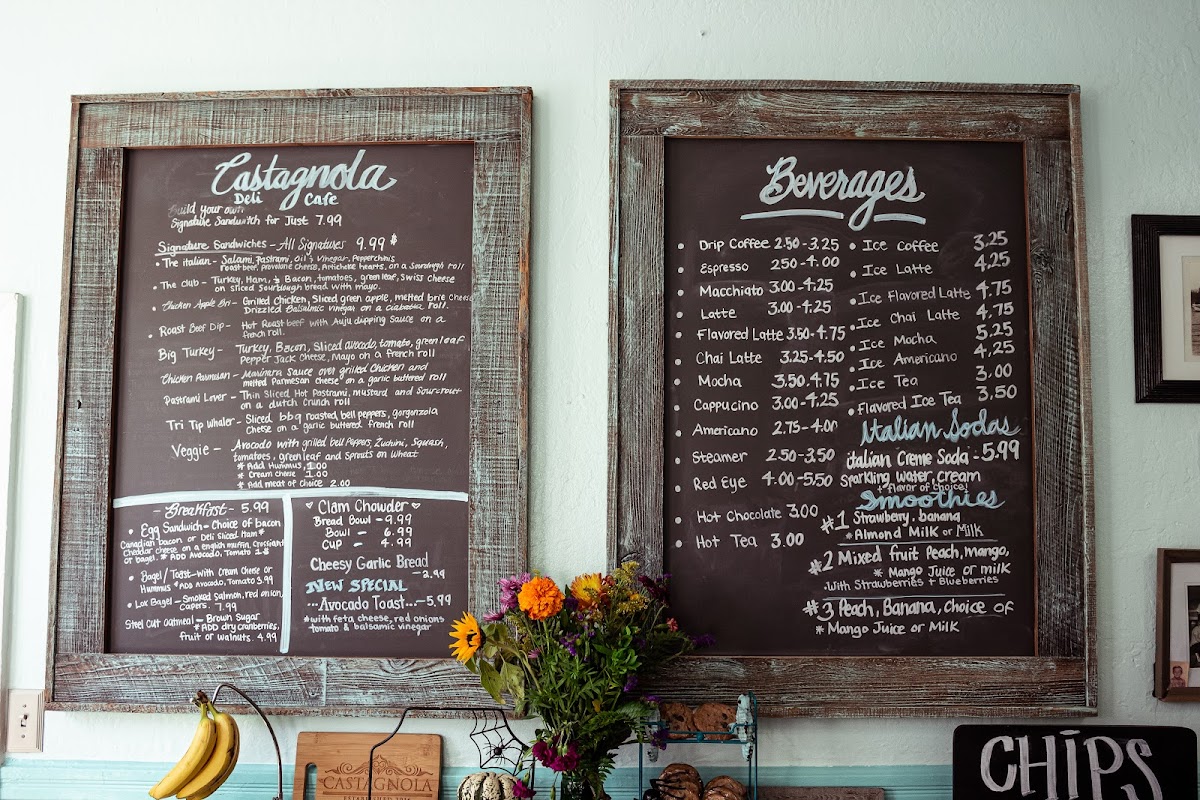 Castagnola
Deli Cafe
Build your own
Signature Sandwich for Just 7.99
Signature Sandwiches - All Signatures 9.99 $
• The italian - Salami, Pastrami, Oil & Vinegar, Pepperchinis
roast beef, Provolone cheese, Artichoke hearts, on a Sourdough roll
• The club - Turkey, Ham, & Bacon, tomatoes, green leaf, Swiss Cheese
on sliced sourdough bread with mayo.
• Chicken Apple Bri - Grilled chicken, Sliced green apple, melted brie cheese
Drizzled Balsalmic vinegar on a ciabatta roll.
• Roast Beef Dip - Hot Roast beef with Auju dipping Sauce on a
french roll.
Big Turkey - Turkey, Bacon, Sliced avocado, tomato, green leaf
Pepper Jack Cheese, Mayo on a french roll
Chicken Parmesan - Marinara Sauce over grilled Chicken and
melted Parmesan cheese on a garlic buttered roll
Pastrami Lover - Thin Sliced Hot Pastrami, mustard and Sour-kraut
on a dutch crunch roll
Tri Tip Whaler - Sliced bbq roasted, bell peppers, gorgonzola
Cheese on a garlic buttered french roll
Veggie - Avocado with grilled bell Peppers, Zuchini, Squash,
tomatoes, green leaf and Sprouts on Wheat
* Add Hummus, 1.00
* Cream cheese 1.00
* Add meat of choice 2.00
- Breakfast - 5.99
• Egg Sandwich - Choice of bacon
Canadian bacon or Deli Sliced Ham *
Cheddar cheese on a english muffin, Croissant
or bagel. * ADD Avocado, Tomato 1 $
• Bagel / Toast - with Cream Cheese or
Hummus * Add Avocado, Tomato 3.99
• Lox Bagel - Smoked Salmon, red onion,
Capers. 7.99
Steel Cut oatmeal - Brown Sugar
* ADD dry cranberries,
fruit or walnuts. 4.99
♡ Clam Chowder ♡
Bread Bowl - 9.99
Bowl - 6.99
Cup - 4.99
Cheesy Garlic Bread
- 2.99
NEW SPECIAL
... Avocado Toast... - 5.99
* with feta cheese, red onions
tomato & balsamic vinegar
Beverages
• Drip Coffee 2.50 - 3.25
• Espresso 2.50 - 4.00
• Macchiato 3.00 - 4.25
• Latte 3.00 - 4.25
• Flavored Latte 3.50 - 4.75
• Chai Latte 3.25 - 4.50
• Mocha 3.50 - 4.75
• Cappucino 3.00 - 4.25
• Americano 2.75 - 4.00
• Steamer 2.50 - 3.50
• Red Eye 4.00 - 5.50
• Hot Chocolate 3.00
• Hot Tea 3.00
• Ice Coffee 3.25
• Ice Latte 4.25
• Ice Flavored Latte 4.75
• Ice Chai Latte 4.75
• Ice Mocha 5.25
• Ice Americano 4.25
• Ice Tea 3.00
• Flavored Ice Tea 3.50
Italian Sodas
italian Creme Soda - 5.99
Sparkling water, cream
+ flavor of choice!
Smoothies
#1 Strawberry, banana
* Almond Milk or Milk
#2 Mixed fruit Peach, mango,
* Mango Juice or milk
With Strawberries + Blueberries
#3 Peach, Banana, choice of
* Mango Juice or Milk
CASTAGNOLA
CHIPS